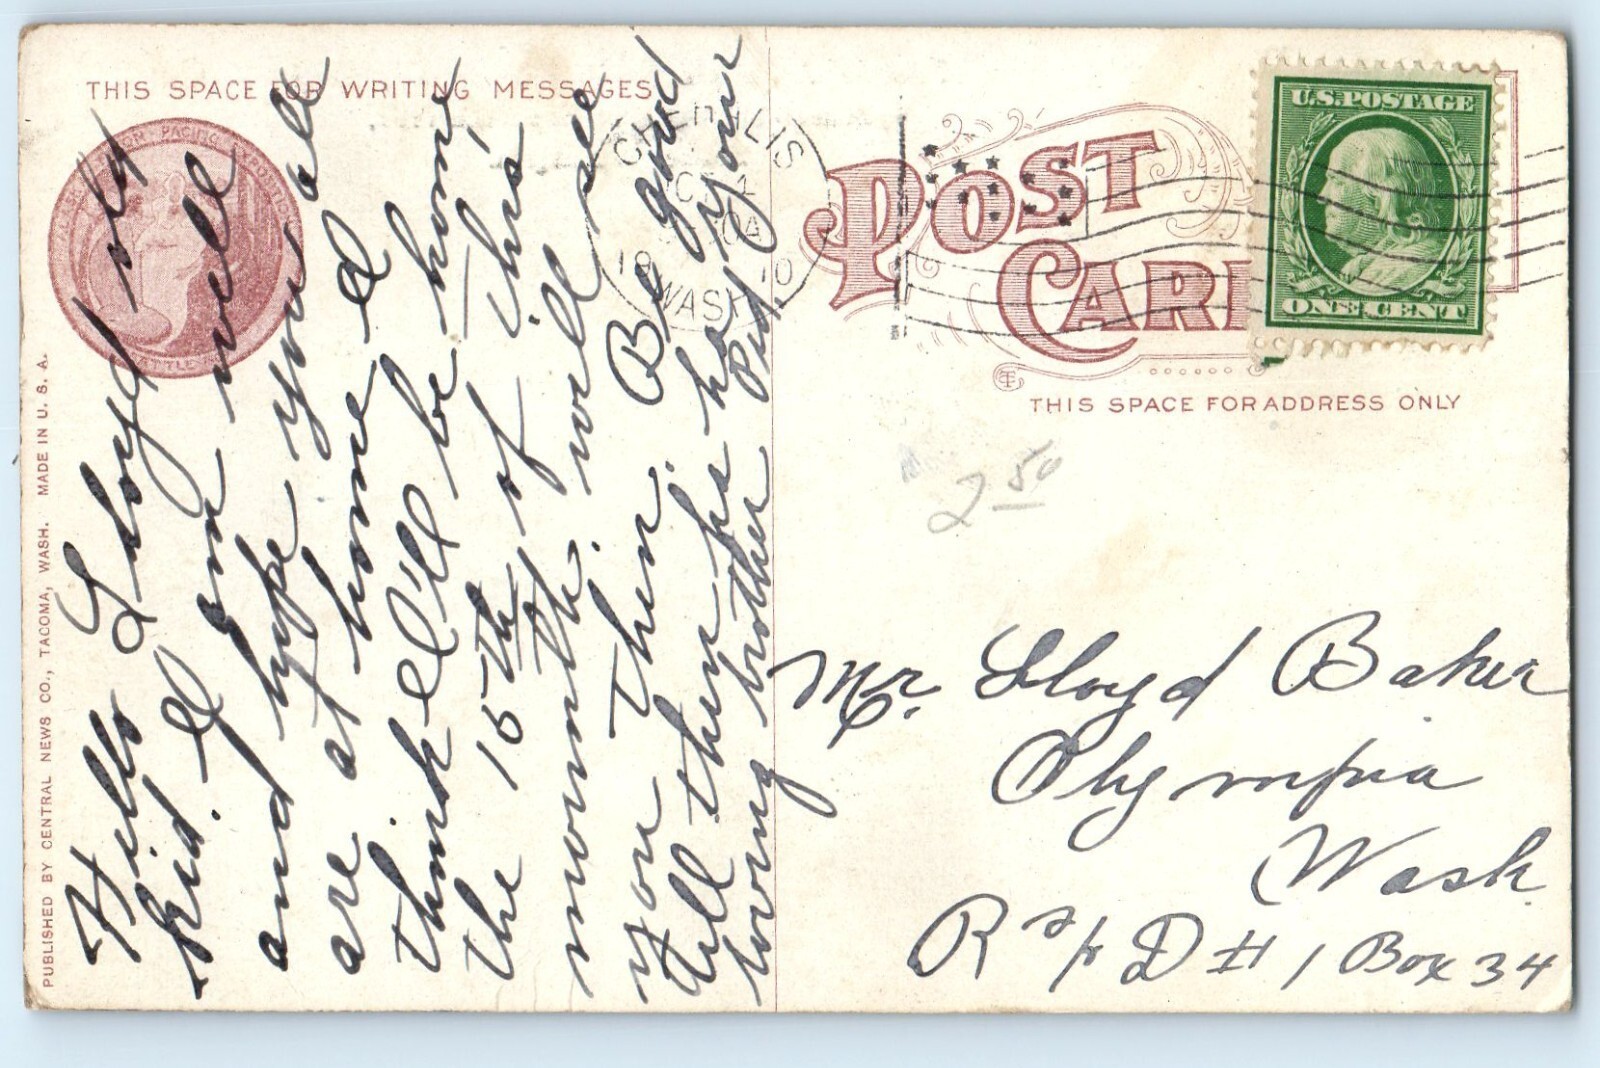 THIS SPACE FOR WRITING MESSAGES
PUBLISHED BY CENTRAL NEWS CO., TACOMA, WASH. MADE IN U. S. A.
PACIFIC EXPOSITION
Hello Lloyd old
kid. I am well
and hope you all
are at home I
think I'll be home
the 15th of this
month. will see
you then. Be good
till then ha ha your
loving brother
CHEHALIS
WASH
POST CAR
U.S. POSTAGE
ONE CENT
THIS SPACE FOR ADDRESS ONLY
2 50
Mr. Lloyd Baker
Olympia
Wash
Box 34